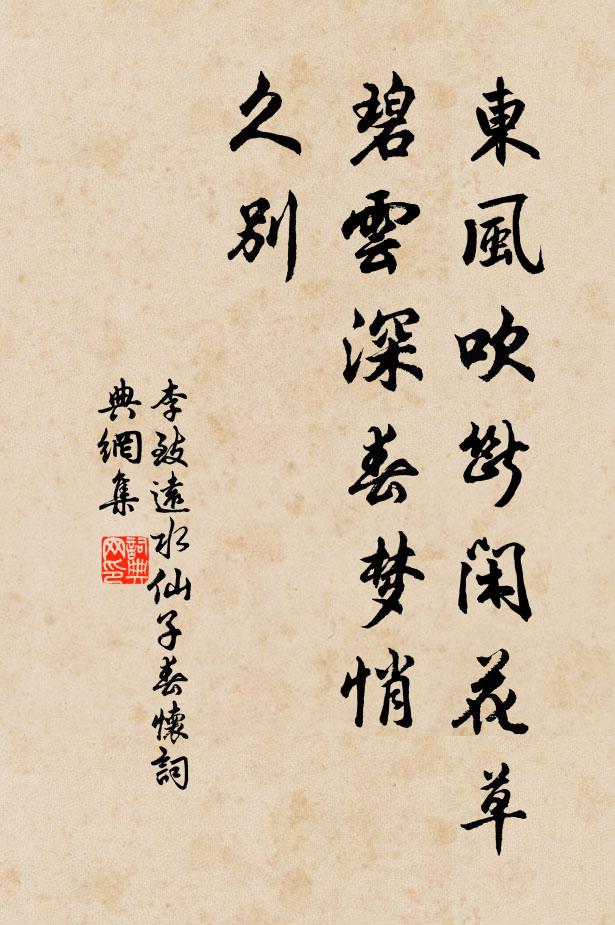 東風吹斷閑花草
碧雲深春梦悄
久别
李致遠水仙子春懷詞
典網集
詞典
网印